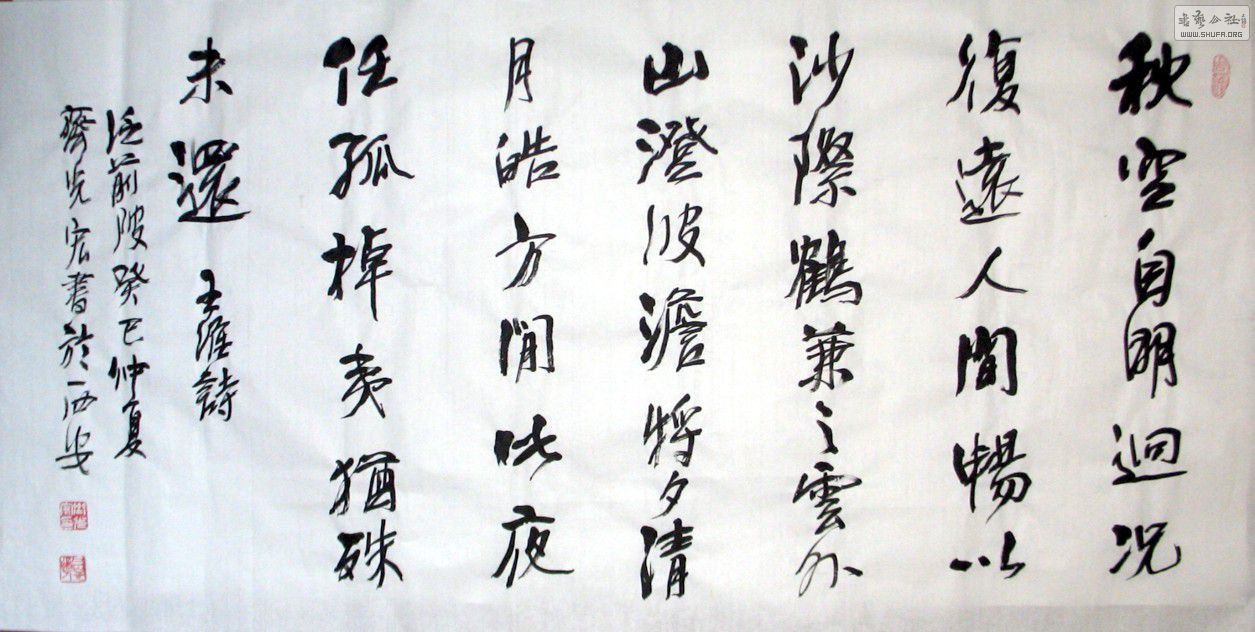 秋空自明迴况
復遠人間暢以
沙際鶴兼之雲外
山澄波澹将夕清
月皓方閒此夜
任孤棹夷猶殊
未還 王維詩
泛前陂癸巳仲夏
齊光宏書於西安
書藝公社
WWW.SHUFA.ORG